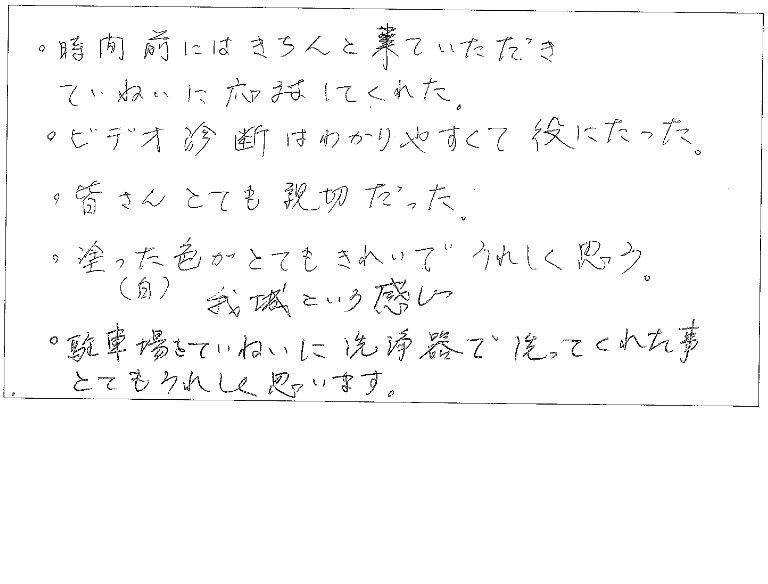 。時間前にはきちんと来ていただき
ていねいに応対してくれた。
。ビデオ診断はわかりやすくて役にたった。
。皆さんとても親切だった。
。塗った色がとてもきれいでうれしく思う。
(白) 我城という感じ
。駐車場をていねいに洗浄器で洗ってくれた事
とてもうれしく思います。